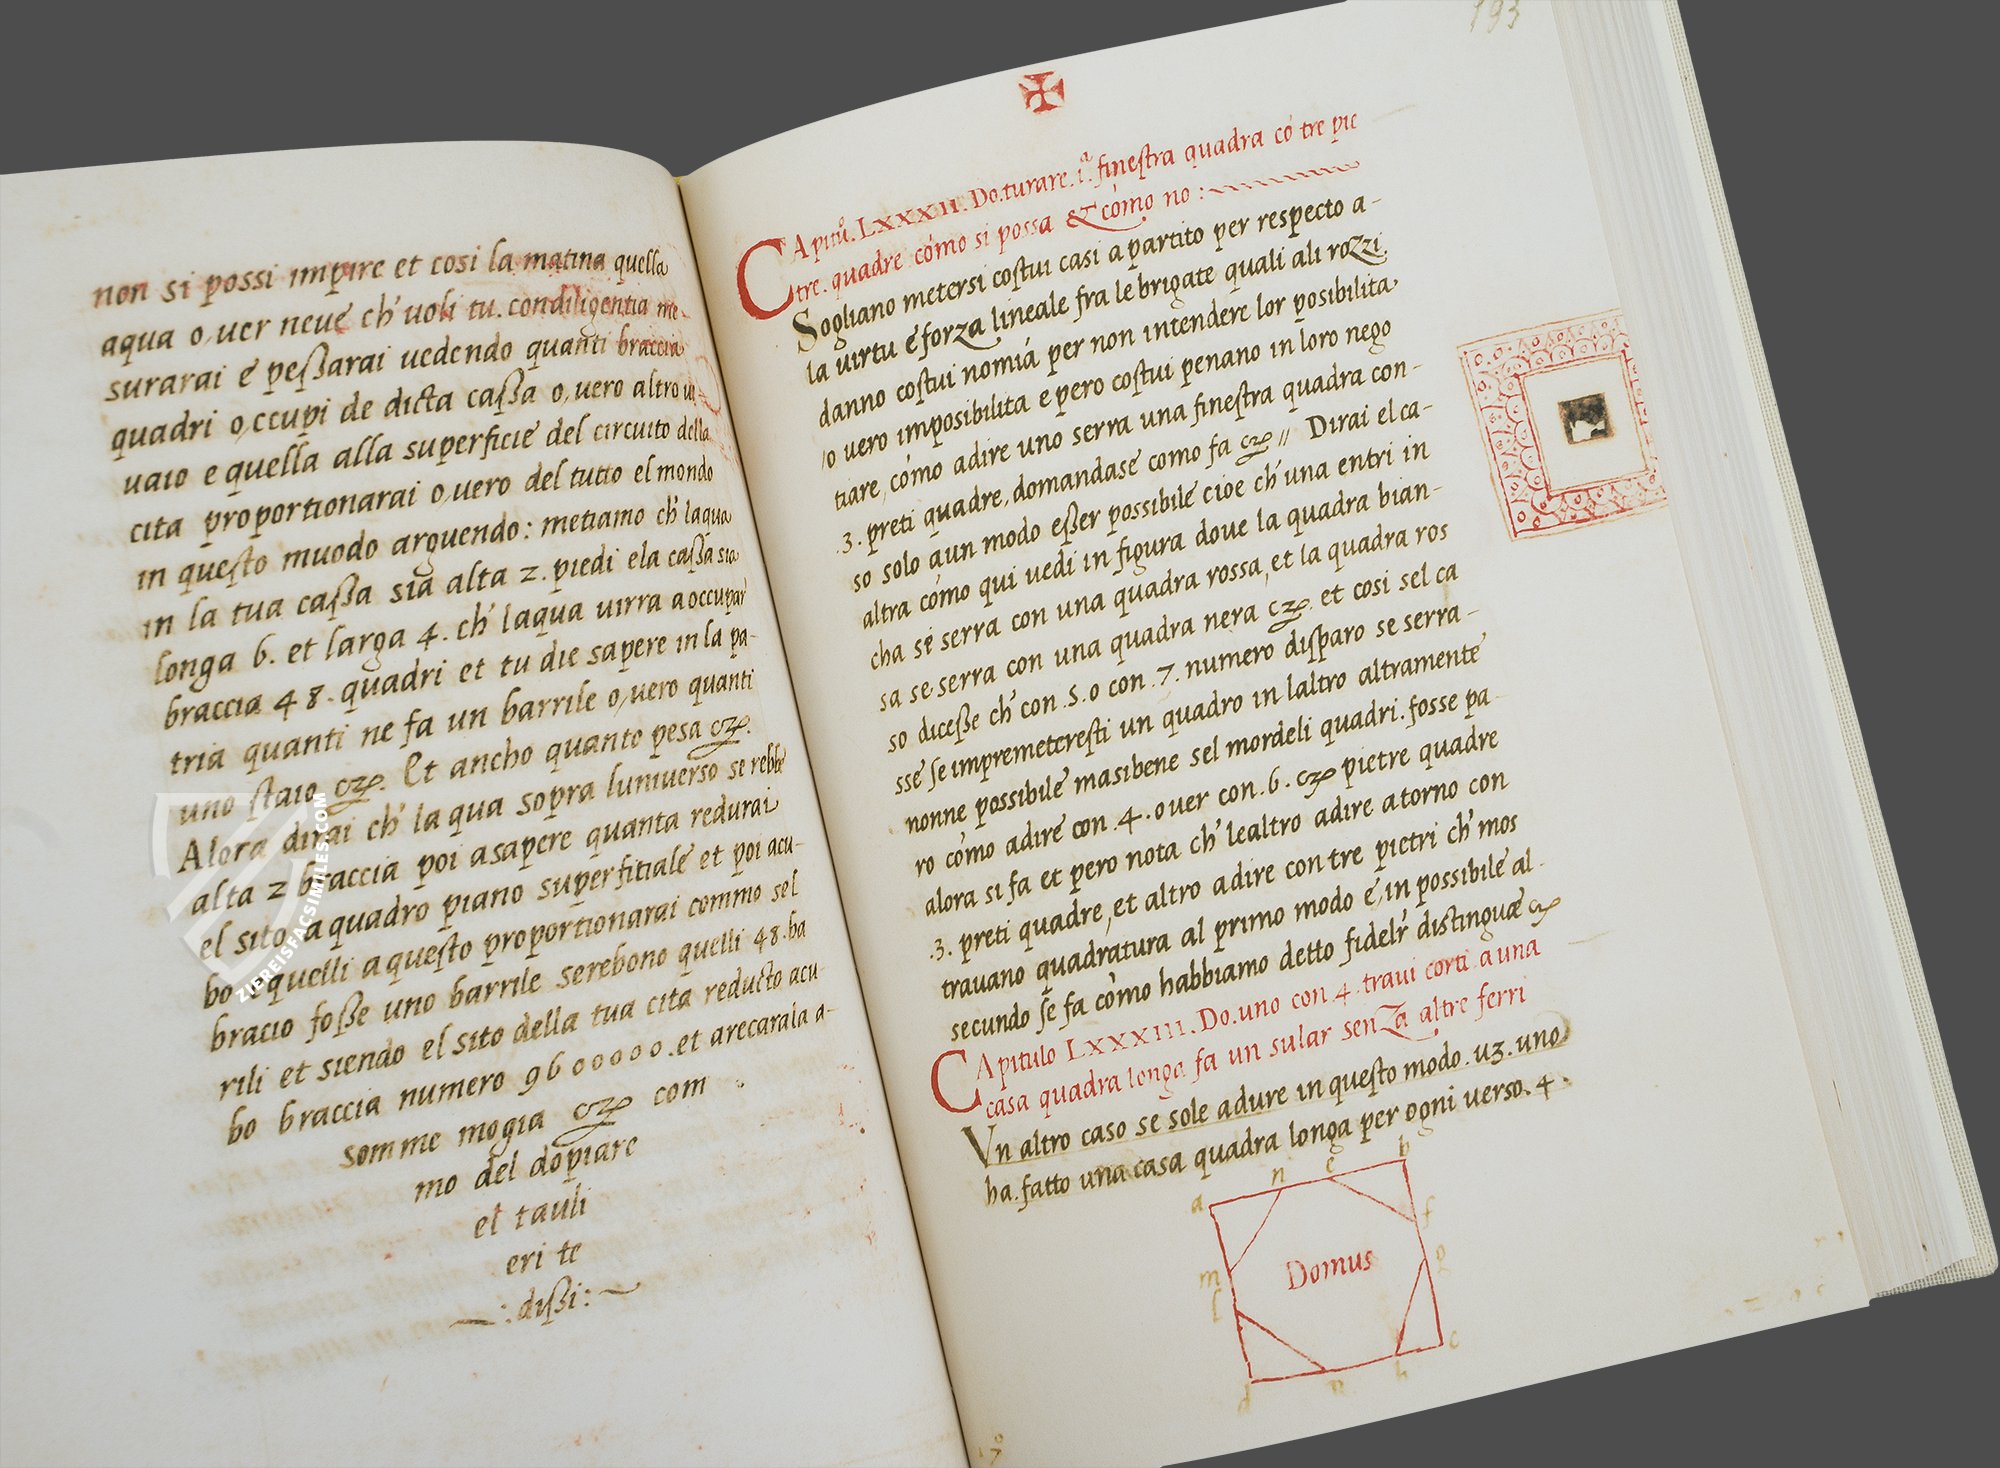 non si possi impire et cosi la matina quella
aqua o,uer neue ch' uoli tu. condiligentia me-
surarai e peßarai uedendo quanti braccia
quadri o,ccupi de dicta caßa o,uero altro
uaio e quella alla superficie del circuito della
cita proportionarai o,uero del tutto el mondo
in questo muodo arguendo: metiamo ch' laqua
in la tua caßa sia alta 2. piedi ela caßa sia
longa 6. et larga 4. ch' laqua uirra a occupar
braccia 48. quadri et tu die sapere in la pa-
tria quanti ne fa un barrile o,uero quanti
uno staio czᵱ. Et ancho quanto pesa czᵱ.
Alora dirai ch' la qua sopra luniuerso se rebbe
alta 2 braccia poi a sapere quanta redurai
el sito a quadro piano superfitiale et poi acu-
bo e quelli a questo proportionarai commo sel
bracio foße uno barrile serebono quelli 48. ba
rili et siendo el sito della tua cita reducto acu-
bo braccia numero 9600000. et arecarala a-
somme mogia czᵱ com
mo del dopiare
el tauli
eri te
: dißi :
193
CApitu°. LXXXII. Do. turare. iª. finestra quadra có tre pie
tre. quadre cómo si possa & cómo no :
Sogliano metersi costui casi a partito per respecto a-
la uirtu e forza lineale fra le brigate quali ali rozzi
danno costui nomiá per non intendere lor posibilita
/o uero imposibilita e pero costui penano in loro nego
tiare, cómo adire uno serra una finestra quadra con-
.3. preti quadre, domandase como fa czᵱ // Dirai el ca-
so solo aun modo eßer possibile cioe ch' una entri in
altra cómo qui uedi in figura doue la quadra bian-
cha se serra con una quadra rossa, et la quadra ros
sa se serra con una quadra nera czᵱ. et cosi sel ca
so diceße ch' con .5. o con .7. numero disparo se serra-
sse se impremeteresti un quadro in laltro altramente
nonne possibile masibene sel mordeli quadri. fosse pa
ro cómo adire con .4. ouer con .6. czᵱ pietre quadre
alora si fa et pero nota ch' lealtro adire atorno con
.3. preti quadre, et altro adire con tre pietri ch' mos
trauano quadratura al primo modo e, in possibile al-
secundo se fa cómo habbiamo detto fidelr' distinguæ czᵱ
CApitulo LXXXIII. Do. uno con 4. traui corti a una
casa quadra longa fa un sular senza altre ferri
Vn altro caso se sole adure in questo modo. uz. uno
ha. fatto una casa quadra longa per ogni uerso. 4.
a n e b
f
m g
l
Domus
d h c